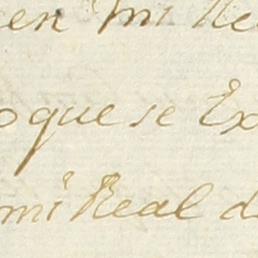 en mi Re
oque se Ex
mi Real d